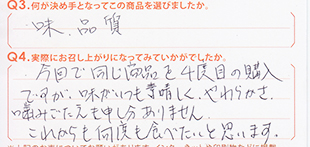 Q3.何が決め手となってこの商品を選びましたか。
味、品質
Q4.実際にお召し上がりになってみていかがでしたか。
今回で同じ商品を4度目の購入
ですが、味がいつも素晴しく、やわらかさ、
噛みごたえも申し分ありません。
これからも何度も食べたいと思います。